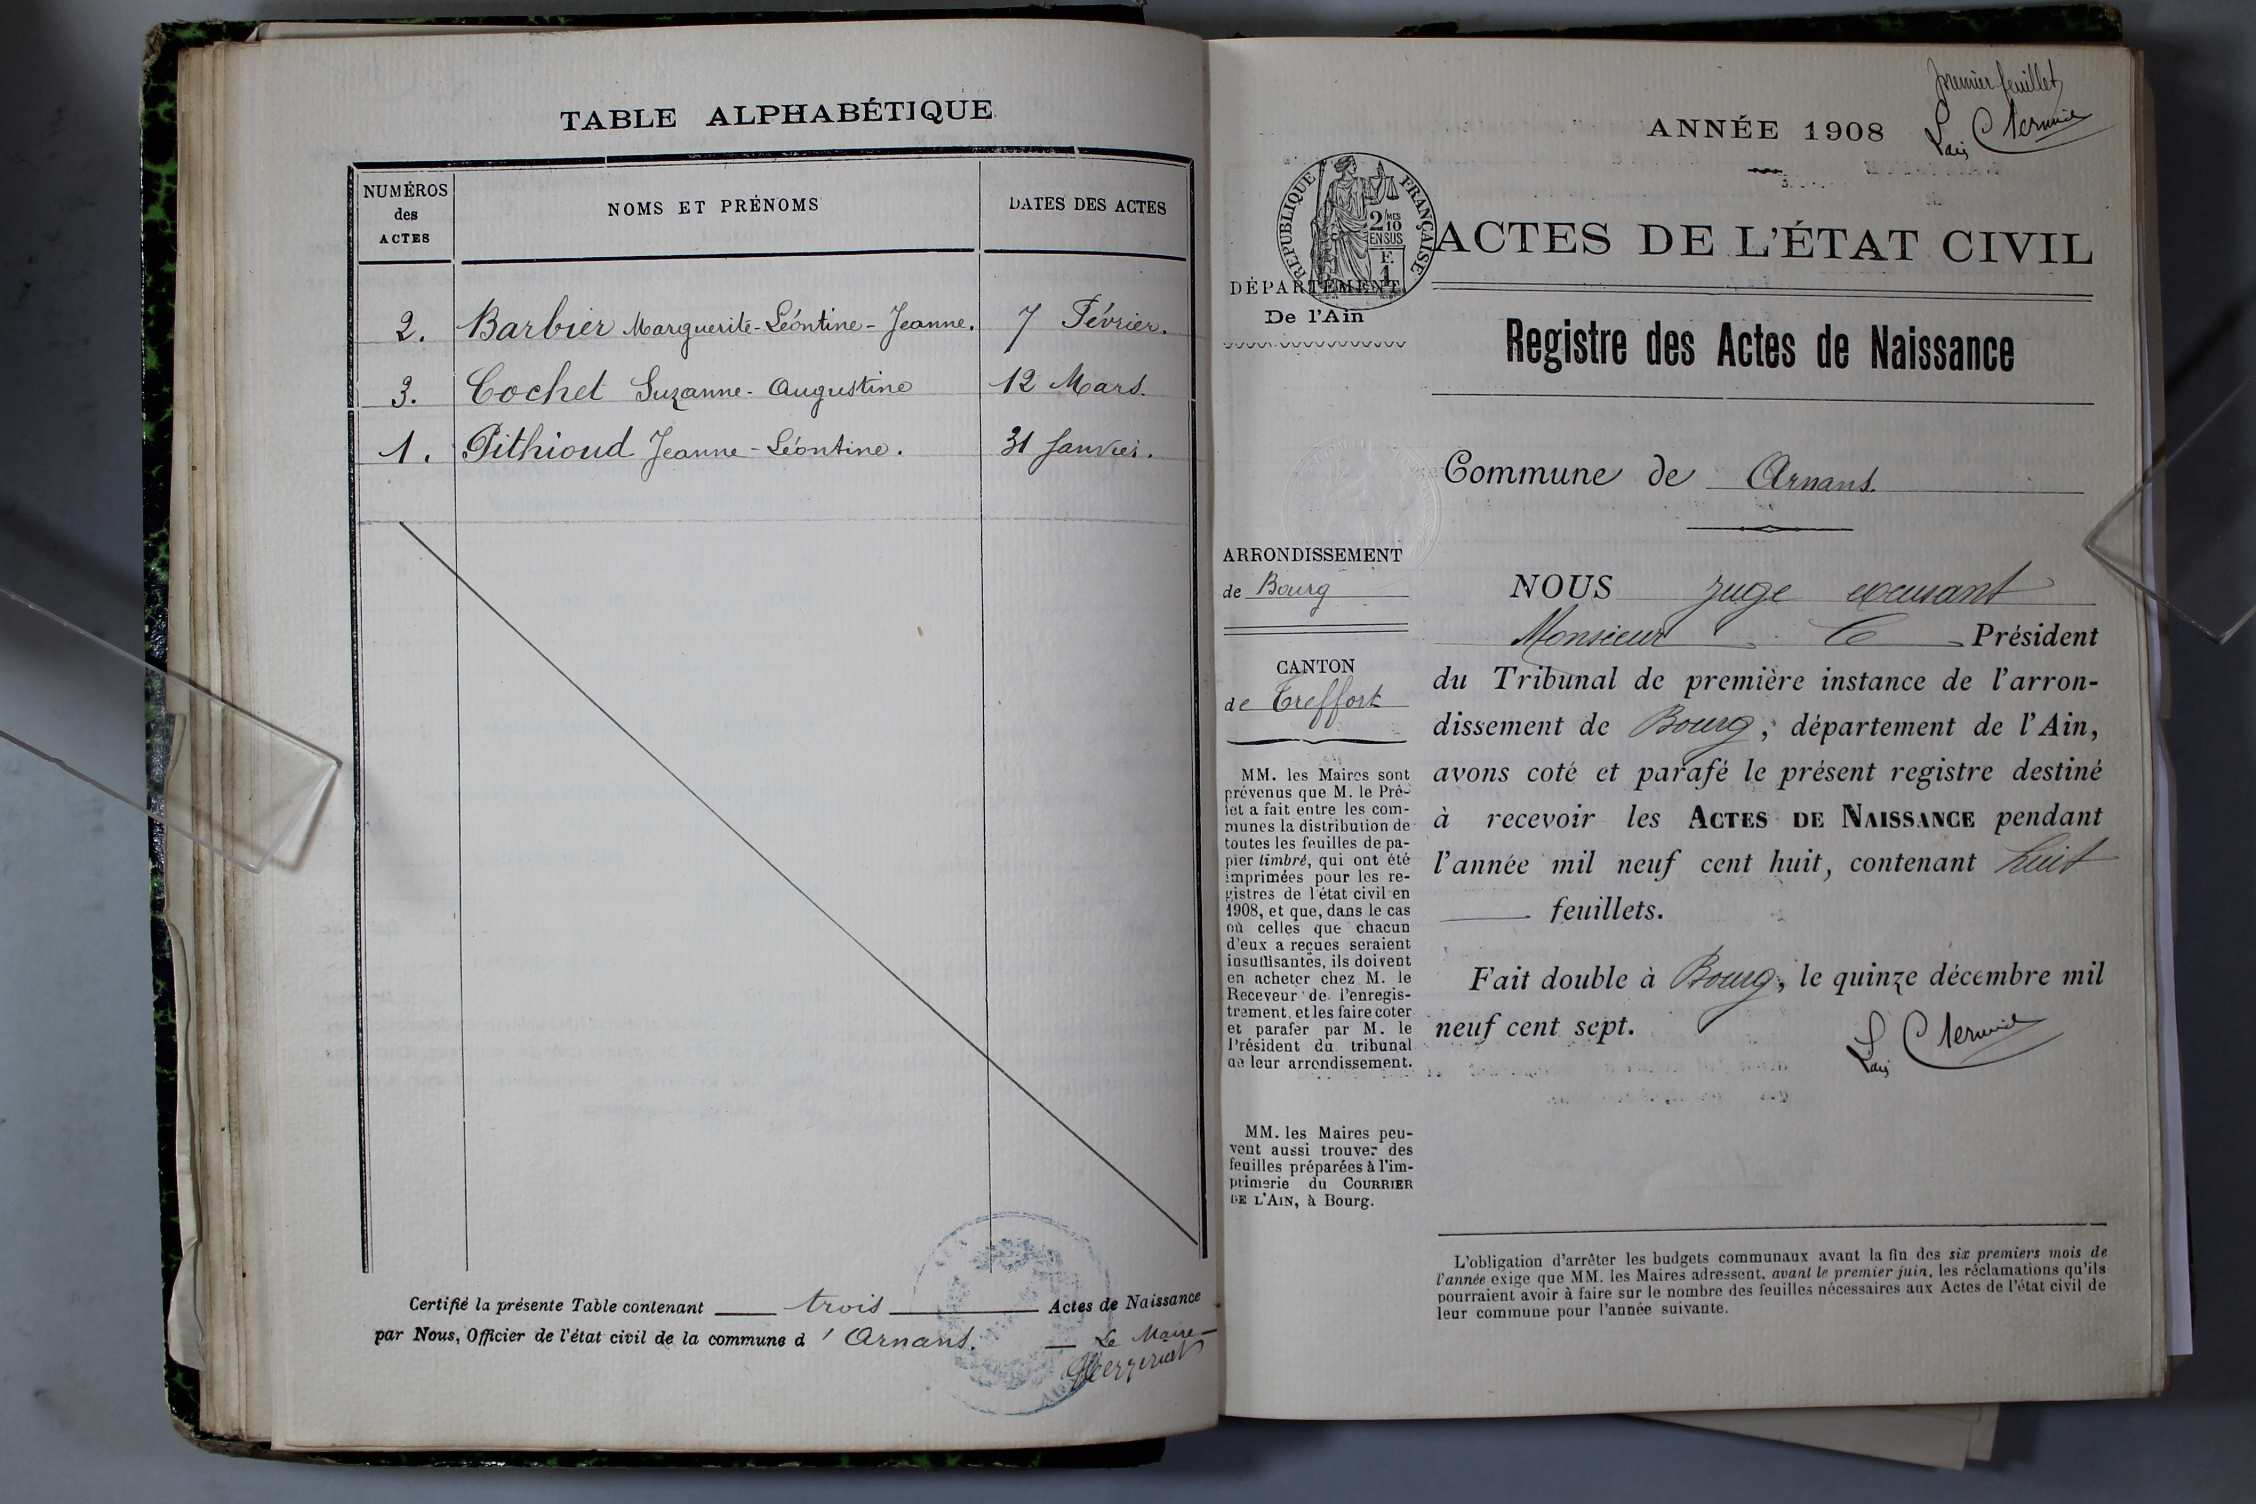 TABLE ALPHABÉTIQUE
NUMÉROS des ACTES
NOMS ET PRÉNOMS
DATES DES ACTES
2. Barbier Marguerite-Léontine-Jeanne. 7 Février.
3. Cochet Suzanne-Augustine 12 Mars.
1. Pithioud Jeanne-Léontine. 31 Janvier.
Certifié la présente Table contenant trois Actes de Naissance
par Nous, Officier de l'état civil de la commune d'Arnans. Le Maire
premier feuillet
ANNÉE 1908
RÉPUBLIQUE FRANÇAISE
2/10 MES
EN SUS
F.
1
ACTES DE L'ÉTAT CIVIL
DÉPARTEMENT
De l'Ain
Registre des Actes de Naissance
Commune de Arnans.
ARRONDISSEMENT
de Bourg
CANTON
de Treffort
MM. les Maires sont
prévenus que M. le Pré-
fet a fait entre les com-
munes la distribution de
toutes les feuilles de pa-
pier timbré, qui ont été
imprimées pour les re-
gistres de l'état civil en
1908, et que, dans le cas
où celles que chacun
d'eux a reçues seraient
insuffisantes, ils doivent
en acheter chez M. le
Receveur de l'enregis-
trement, et les faire coter
et parafer par M. le
Président du tribunal
de leur arrondissement.
MM. les Maires peu-
vent aussi trouver des
feuilles préparées à l'im-
primerie du COURRIER
DE L'AIN, à Bourg.
NOUS juge excusant
Monsieur le Président
du Tribunal de première instance de l'arron-
dissement de Bourg, département de l'Ain,
avons coté et parafé le présent registre destiné
à recevoir les ACTES DE NAISSANCE pendant
l'année mil neuf cent huit, contenant huit
feuillets.
Fait double à Bourg, le quinze décembre mil
neuf cent sept.
L'obligation d'arrêter les budgets communaux avant la fin des six premiers mois de
l'année exige que MM. les Maires adressent, avant le premier juin, les réclamations qu'ils
pourraient avoir à faire sur le nombre des feuilles nécessaires aux Actes de l'état civil de
leur commune pour l'année suivante.